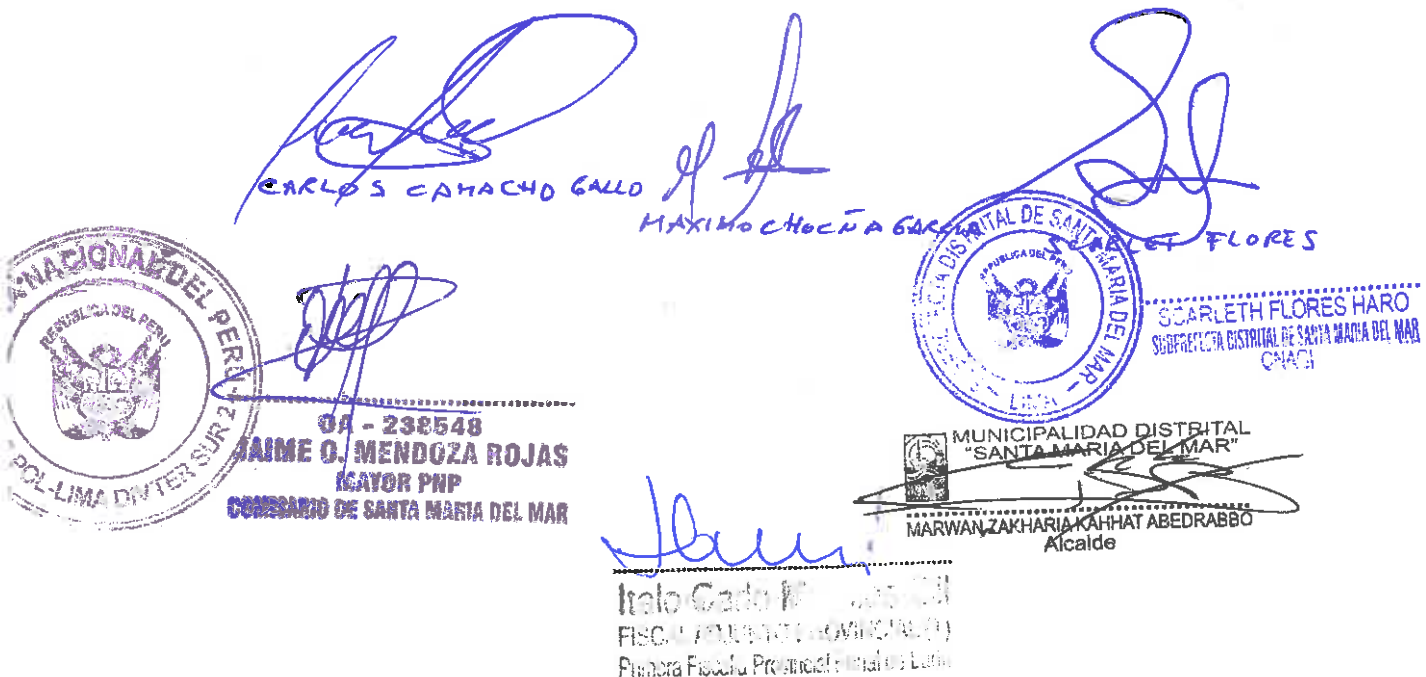 CARLOS CAMACHO GALLO
MAXIMO CHOCÑA GARCIA
SCARLET FLORES
NACIONAL DEL PERU
REPUBLICA DEL PERU
POL-LIMA DIVTER SUR 2
OA - 238548
JAIME O. MENDOZA ROJAS
MAYOR PNP
COMISARIO DE SANTA MARIA DEL MAR
DISTRITAL DE SANTA MARIA DEL MAR
REPUBLICA DEL PERU
- LIMA -
SCARLETH FLORES HARO
SUBPREFECTA DISTRITAL DE SANTA MARIA DEL MAR
MUNICIPALIDAD DISTRITAL
"SANTA MARIA DEL MAR"
MARWAN ZAKHARIA KAHHAT ABEDRABBO
Alcalde
Italo Carlo
FISCAL ADJUNTO PROVINCIAL
Primera Fiscalía Provincial Penal